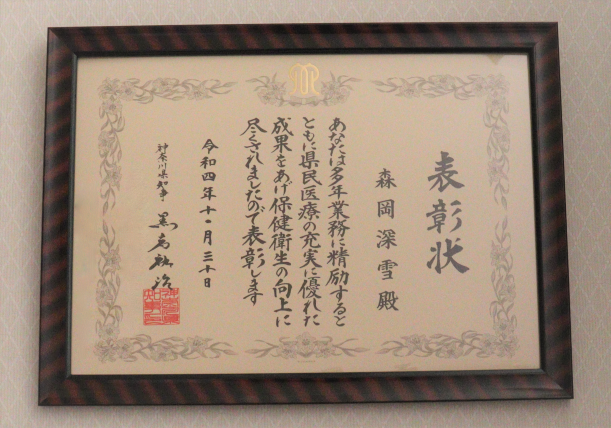 表彰状
森岡深雪殿
あなたは多年業務に精励すると
ともに県民医療の充実に優れた
成果をあげ保健衛生の向上に
尽くされましたので表彰します
令和四年十一月三十日
神奈川県知事 黒岩祐治